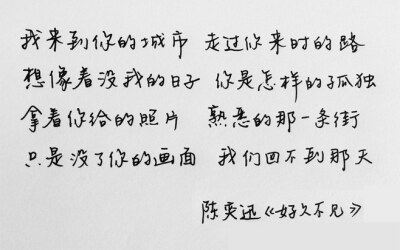 我来到你的城市 走过你来时的路
想像着没我的日子 你是怎样的孤独
拿着你给的照片 熟悉的那一条街
只是没了你的画面 我们回不到那天
陈奕迅《好久不见》